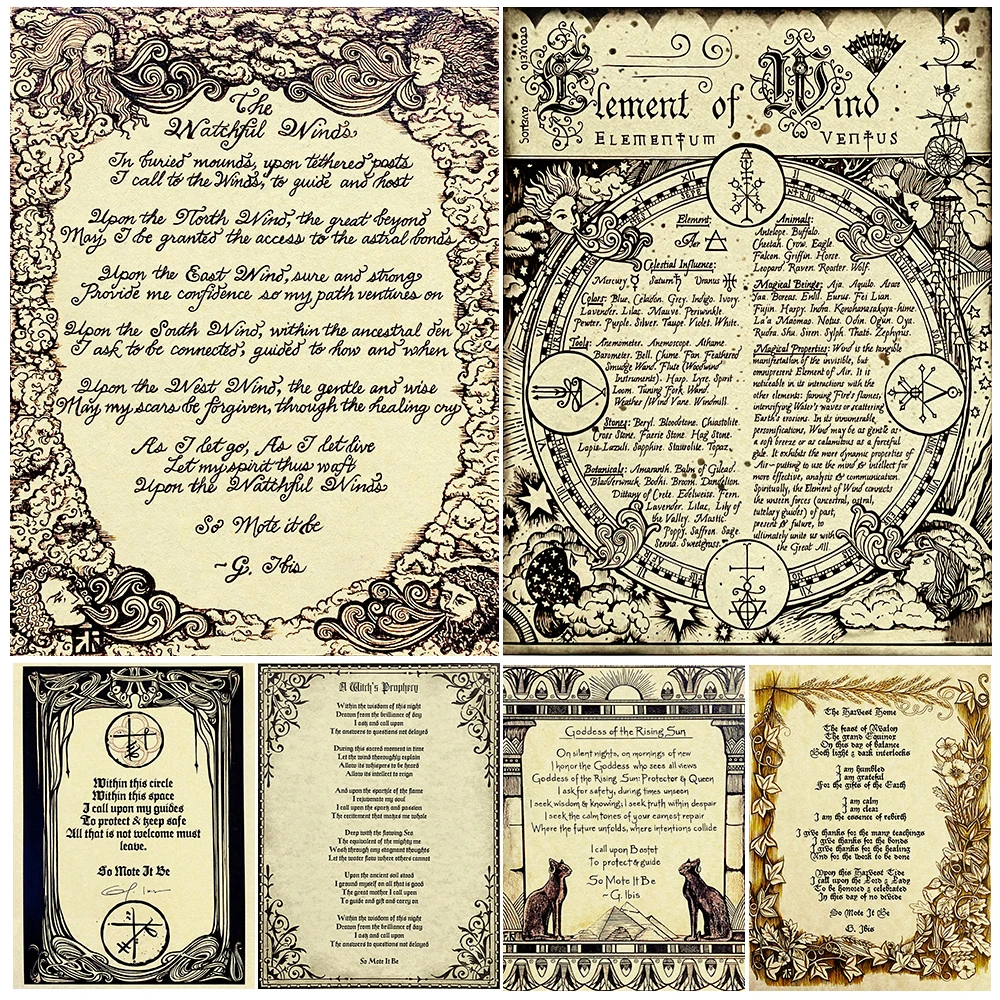 The
Watchful Winds
In buried mounds, upon tethered posts
I call to the Winds, to guide and host
Upon the North Wind, the great beyond
May I be granted the access to the astral bonds
Upon the East Wind, sure and strong
Provide me confidence so my path ventures on
Upon the South Wind, within the ancestral den
I ask to be connected, guided to how and when
Upon the West Wind, the gentle and wise
May my scars be forgiven, through the healing cry
As I let go, As I let live
Let my spirit thus waft
Upon the Watchful Winds
So Mote it be
~G. Ibis
Element of Wind
Elementum Ventus
Element:
Air
Celestial Influence:
Mercury ☿ Saturn ♄ Uranus ♅
Colors: Blue. Celadon. Grey. Indigo. Ivory.
Lavender. Lilac. Mauve. Periwinkle
Pewter. Purple. Silver. Taupe. Violet. White.
Tools: Anemometer. Anemoscope. Athame.
Barometer. Bell. Chime. Fan. Feathered
Smudge Wand. Flute (Woodwind
Instruments). Harp. Lyre. Spirit
Loom. Tuning Fork. Wand.
Weather/Wind Vane. Windmill.
Stones: Beryl. Bloodstone. Chiastolite.
Cross Stone. Faerie Stone. Hag Stone.
Lapis Lazuli. Sapphire. Staurolite. Topaz.
Botanicals: Amaranth. Balm of Gilead.
Bladderwrack. Bodhi. Broom. Dandelion.
Dittany of Crete. Edelweiss. Fern.
Lavender. Lilac. Lily of
the Valley. Mastic.
Poppy. Saffron. Sage.
Senna. Sweetgrass.
Animals:
Antelope. Buffalo.
Cheetah. Crow. Eagle.
Falcon. Griffin. Horse.
Leopard. Raven. Rooster. Wolf.
Magical Beings: Aja. Aquilo.
Boreas. Enlil. Eurus. Fei Lian.
Fujin. Harpy. Indra. Konohanasakuya-hime.
La'a Maomao. Notus. Odin. Ogun. Oya.
Rudra. Shu. Siren. Sylph. Thati. Zephyrus.
Magical Properties: Wind is the tangible
manifestation of the invisible, but
omnipresent Element of Air. It is
noticeable in its interactions with the
other elements: fanning Fire's flames,
intensifying Water's waves or scattering
Earth's erosions. In its innumerable
personifications, Wind may be as gentle as
a soft breeze or as calamitous as a forceful
gale. It exhibits the more dynamic properties of
Air—putting to use the mind & intellect for
more effective, analysis & communication.
Spiritually, the Element of Wind connects
the unseen forces (ancestral, astral,
tutelary guides) of past,
present & future, to
ultimately unite us with
the Great All.
Within this circle
Within this space
I call upon my guides
To protect & keep safe
All that is not welcome must
leave.
So Mote It Be
A Witch's Prophecy
Within the wisdom of this night
Drawn from the brilliance of day
I ask and call upon
The answers to questions not delayed
During this sacred moment in time
Let the wind thoroughly explain
Allow its whispers to be heard
Allow its intellect to reign
And upon the sparkle of the flame
I rejuvenate my soul
I call upon the spark and passion
The excitement that makes me whole
Deep with the flowing Sea
The equivalent of the mighty me
Wash through any stagnant thoughts
Let the water flow where others cannot
Upon the ancient soil stood
I ground myself on all that is good
The great mother I call upon
To guide and gift and carry on
Within the wisdom of this night
Drawn from the brilliance of day
I ask and call upon
The answers to questions not delayed
So Mote It Be
Goddess of the Rising Sun
On silent nights, on mornings of new
I honor the Goddess who sees all views
Goddess of the Rising Sun: Protector & Queen
I ask for safety, during times unseen
I seek wisdom & knowing; I seek truth within despair
I seek the calm tones of your earnest repair
Where the future unfolds, where intentions collide
I call upon Bastet
To protect & guide
So Mote It Be
~ G. Ibis
The Harvest Home
The feast of Avalon
The grand Equinox
On this day of balance
Both light & dark interlocks
I am humbled
I am grateful
For the gifts of the Earth
I am calm
I am clear
I am the essence of rebirth
I give thanks for the many teachings
I give thanks for the bonds
I give thanks for the healing
And for the work to be done
Upon this Harvest Tide
I call upon the Lord & Lady
To be honored & celebrated
In this day of no divide
So Mote It Be
G. Ibis